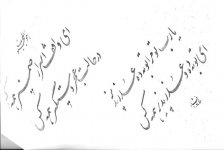 ای واقف اسرار ضمیر همه کس
در حالت عجز دستگیر همه کس
یارب تو مرا توبه ده و عذر پذیر
ای توبه ده و عذر پذیر همه کس